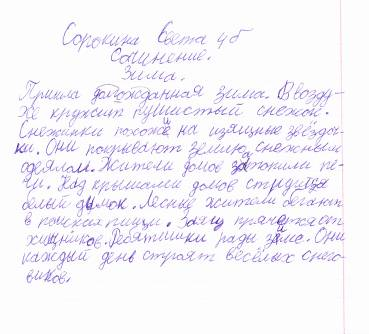 Сорокина Света 4б
Сочинение.
Зима.
Пришла долгожданная зима. В возду-
хе кружит пушистый снежок.
Снежинки похоже на изящные звёздоч-
ки. Они покрывают землю снежным
одеялом. Жители домов затопили пе-
чи. Над крышами домов струится
белый дымок. Лесные жители бегают
в поисках пищи. Заяц
хищников. Ребятишки рады зиме. Они
каждый день строят весёлых снего-
виков.